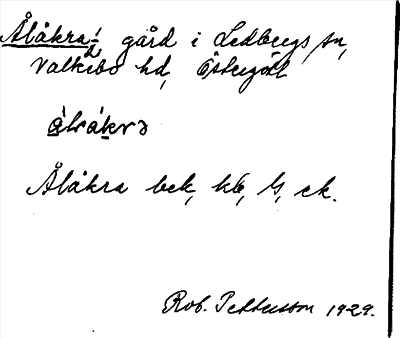 Ålåkra, gård i Ledbergs sn,
Valkebo hd, Östergötl
Ålåkra bek, kb, ck.
Rob. Pettersson 1929.